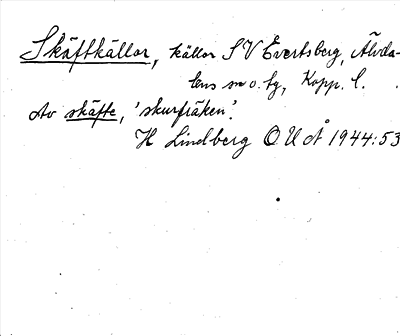 Skäftkällor, källor SV Evertsberg, Älvda-
lens sn o. tg, Kopp. l.
Av skäfte, 'skurfräken'.
H Lindberg OUÅ 1944:53